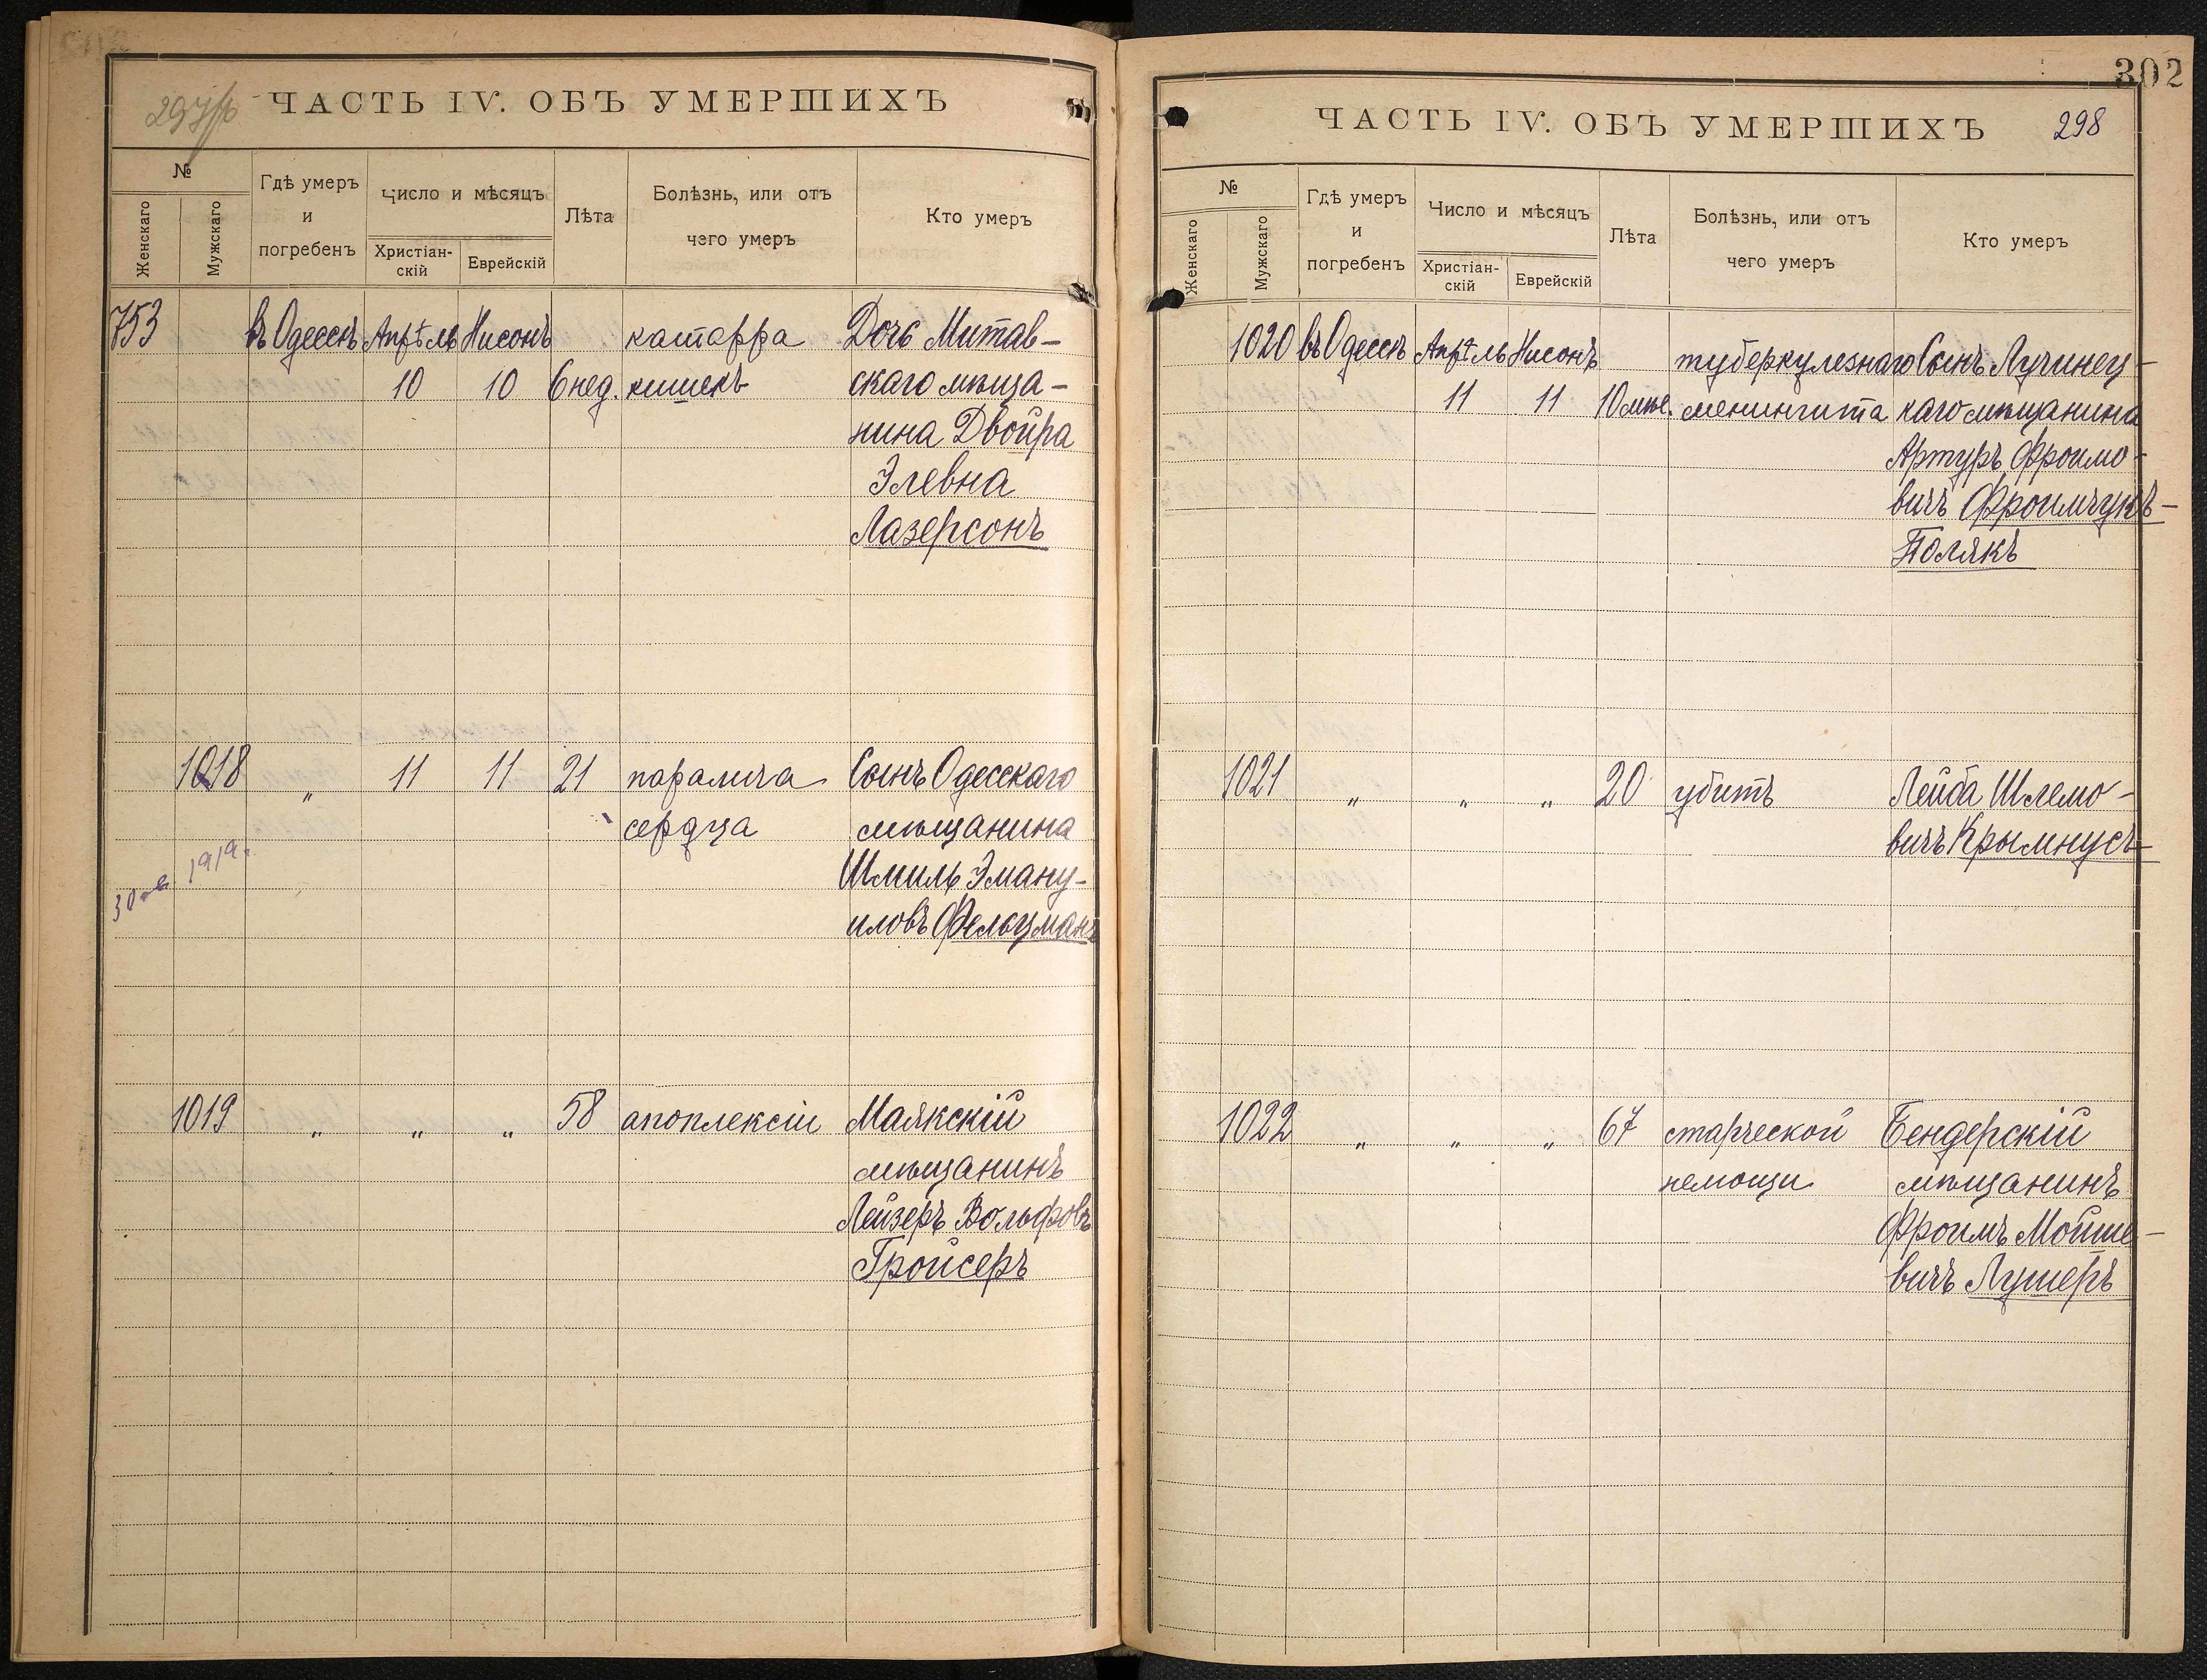 ЧАСТЬ IV. ОБЪ УМЕРШИХЪ
№
Женскаго
Мужскаго
Гдѣ умеръ
и
погребенъ
Число и мѣсяцъ
Христіан-
скій
Еврейскій
Лѣта
Болѣзнь, или отъ
чего умеръ
Кто умеръ
753 въ Одессѣ Апрѣль Нисонъ катарра Дочь Митав-
10 10 6 нед. кишекъ скаго мѣща-
нина Двойра
Элевна
Лазерсонъ
1018 " 11 11 21 паралича Сынъ Одесскаго
сердца мѣщанина
Шмиль Эману-
иловъ Фельцманъ
1919г.
1019 " " " 58 апоплексіи Маякскій
мѣщанинъ
Лейзеръ Вольфовъ
Гройсеръ
302
ЧАСТЬ IV. ОБЪ УМЕРШИХЪ 298
№
Женскаго
Мужскаго
Гдѣ умеръ
и
погребенъ
Число и мѣсяцъ
Христіан-
скій
Еврейскій
Лѣта
Болѣзнь, или отъ
чего умеръ
Кто умеръ
1020 въ Одессѣ Апрѣль Нисонъ туберкулезнаго Сынъ Лучинец-
11 11 10 мѣс. менингита каго мѣщанина
Артуръ Фроимо-
вичъ Фроимчукъ-
Полякъ
1021 " " " 20 убитъ Лейба Шлемо-
вичъ Крымнусъ
1022 " " " 67 старческой Бендерскій
немощи мѣщанинъ
Фроимъ Мойше-
вичъ Лушеръ